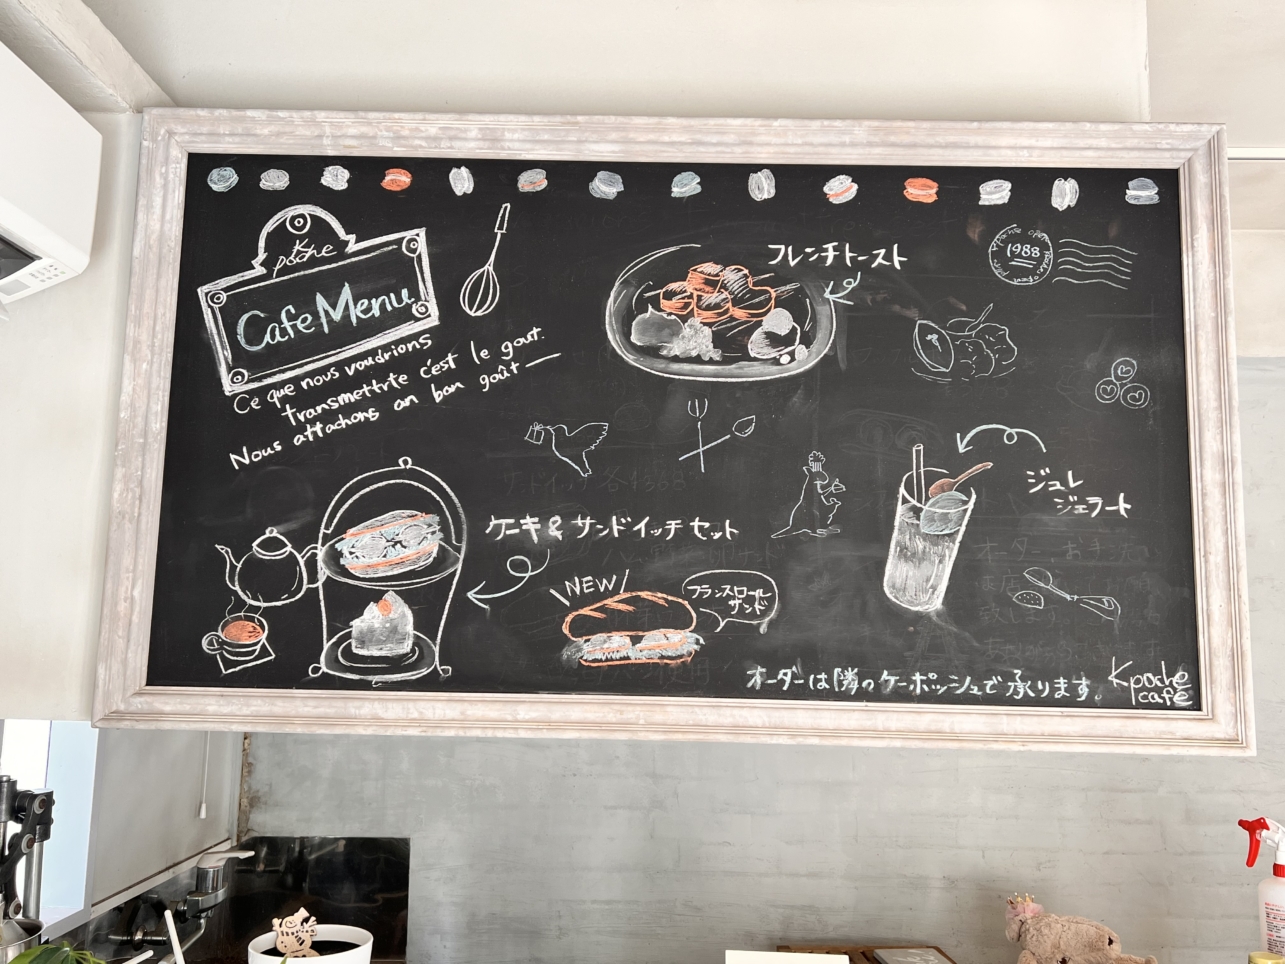 K
poche
Cafe Menu
Ce que nous voudrions
transmettrte c'est le gout.
Nous attachons an bon goût
フレンチトースト
1988
ジュレ
ジェラート
ケーキ & サンドイッチ セット
NEW
フランスロール
サンド
オーダーは隣のケーポッシュで承ります。
K poche
café